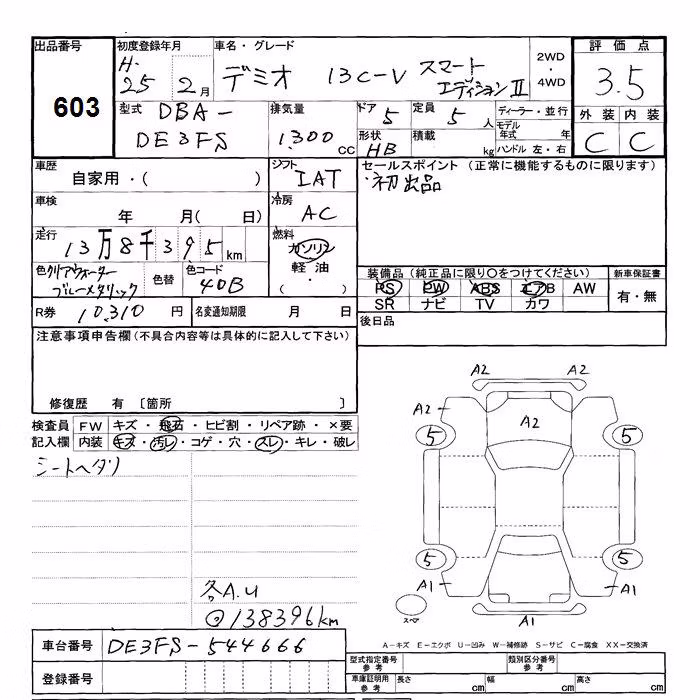 出品番号 初度登録年月 車名・グレード 2WD・4WD 評価点
603 H.25 2月 デミオ 13C-V スマートエディションⅡ 3.5
型式 DBA- 排気量 ドア 5 定員 5人 ディーラー・並行 外装 内装
DE3FS 1,300 CC 形状 HB 積載 kg モデル年式 年 C C
ハンドル 左・右
車歴 シフト セールスポイント (正常に機能するものに限ります)
自家用・( ) IAT ・初出品
車検 冷房
年 月( 日) AC
走行 燃料
13万8千395km ガソリン
色 クリアウォーターブルーメタリック 色替 色コード 40B 軽油・( )
装備品 (純正品に限り○をつけてください) 新車保証書
PS PW ABS エアB AW 有・無
SR ナビ TV カワ
R券 10,310 円 名変通知期限 月 日 後日品
注意事項申告欄(不具合内容等は具体的に記入して下さい)
修復歴 有 〔箇所 〕
検査員 FW キズ・飛石・ヒビ割・リペア跡・×要
記入欄 内装 キズ・汚レ・コゲ・穴・スレ・キレ・破レ
シートヘタリ
A2 A2
A2 A2
5 5
5 5
A1 A1
スペア A1
各A.U
138396km
車台番号 DE3FS-544666
A-キズ E-エクボ U-凹み W-補修跡 S-サビ C-腐食 XX-交換済
登録番号
型式指定番号 参考 類別区分番号 参考
車庫証明用 参考 長さ cm 幅 cm 高さ cm